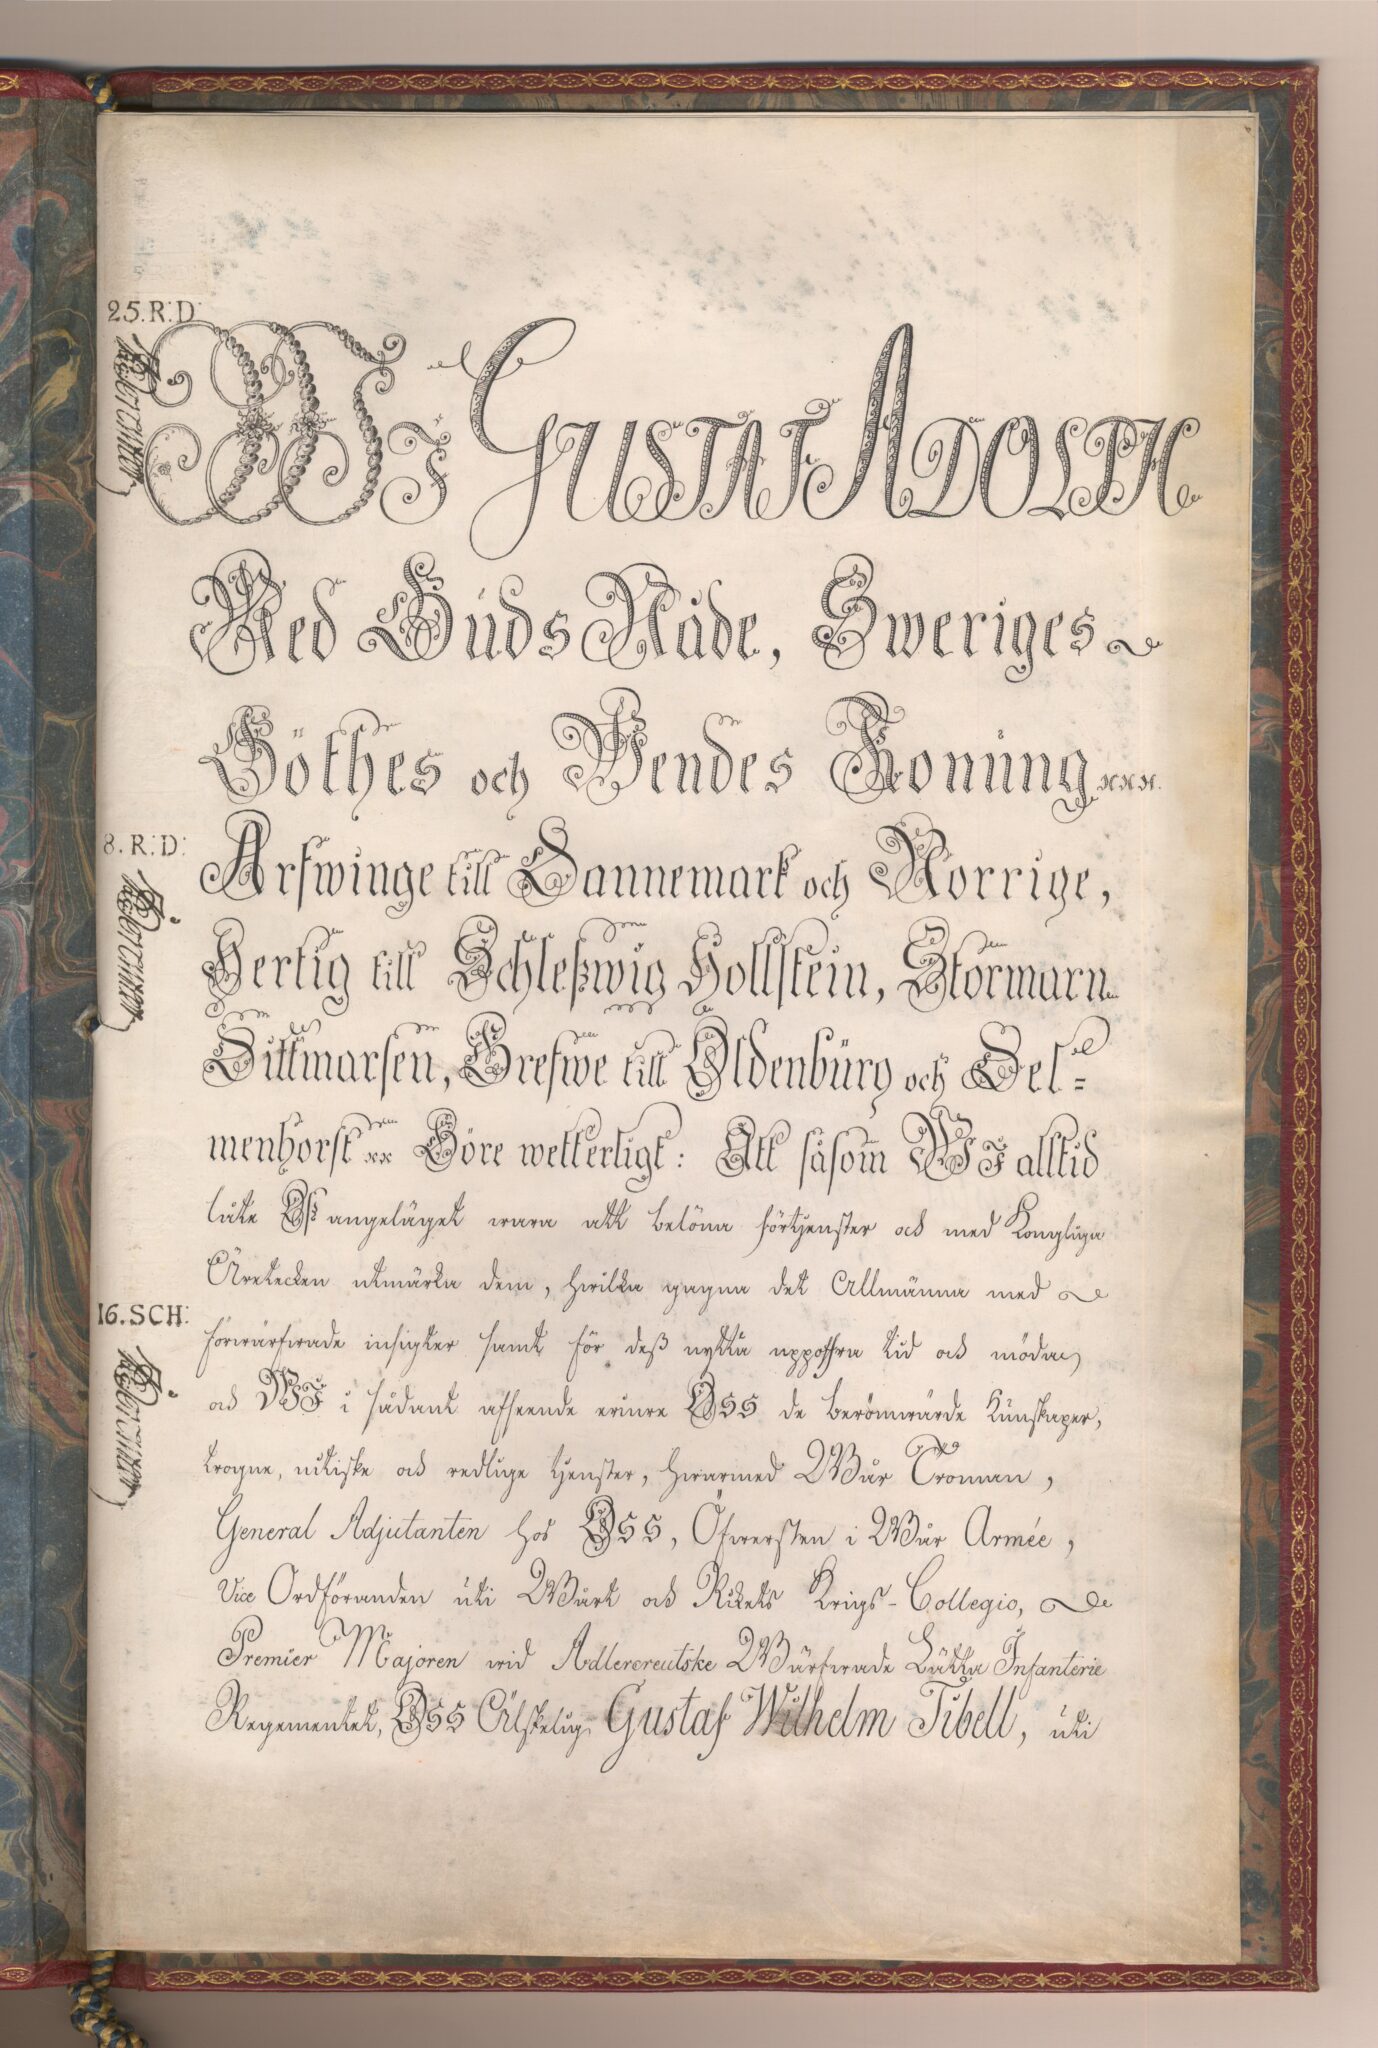 25. R: D:
WJ GUSTAF ADOLPH
Med Guds Nåde, Sweriges
Göthes och Wendes Konung xxx.
8. R: D:
Arfwinge till Dannemark och Norrige,
Hertig till Schleßwig Hollstein, Stormarn
Dittmarsen, Grefwe till Oldenburg och Del=
menhorst xx Göre wetterligt: Att såsom WJ alltid
låte Oß angeläget wara att belöna förtjenster och med Kongliga
Äretecken utmärka dem, hwilka gagna det Allmänna med
16. SCH:
förwärfwade insigter samt för deß nytta uppoffra tid och möda,
och WJ i sådant afseende erinre OSS de berömwärde Kunskaper,
trogne, nitiske och redlige tjenster, hwarmed Wår Troman,
General Adjutanten hos OSS, Öfwersten i Wår Armée,
Vice Ordföranden uti Wårt och Rikets Krigs-Collegio,
Premier Majoren wid Adlercreutske Wärfwade Lätta Infanterie
Regementet, OSS Älskelig Gustaf Wilhelm Tibell, uti